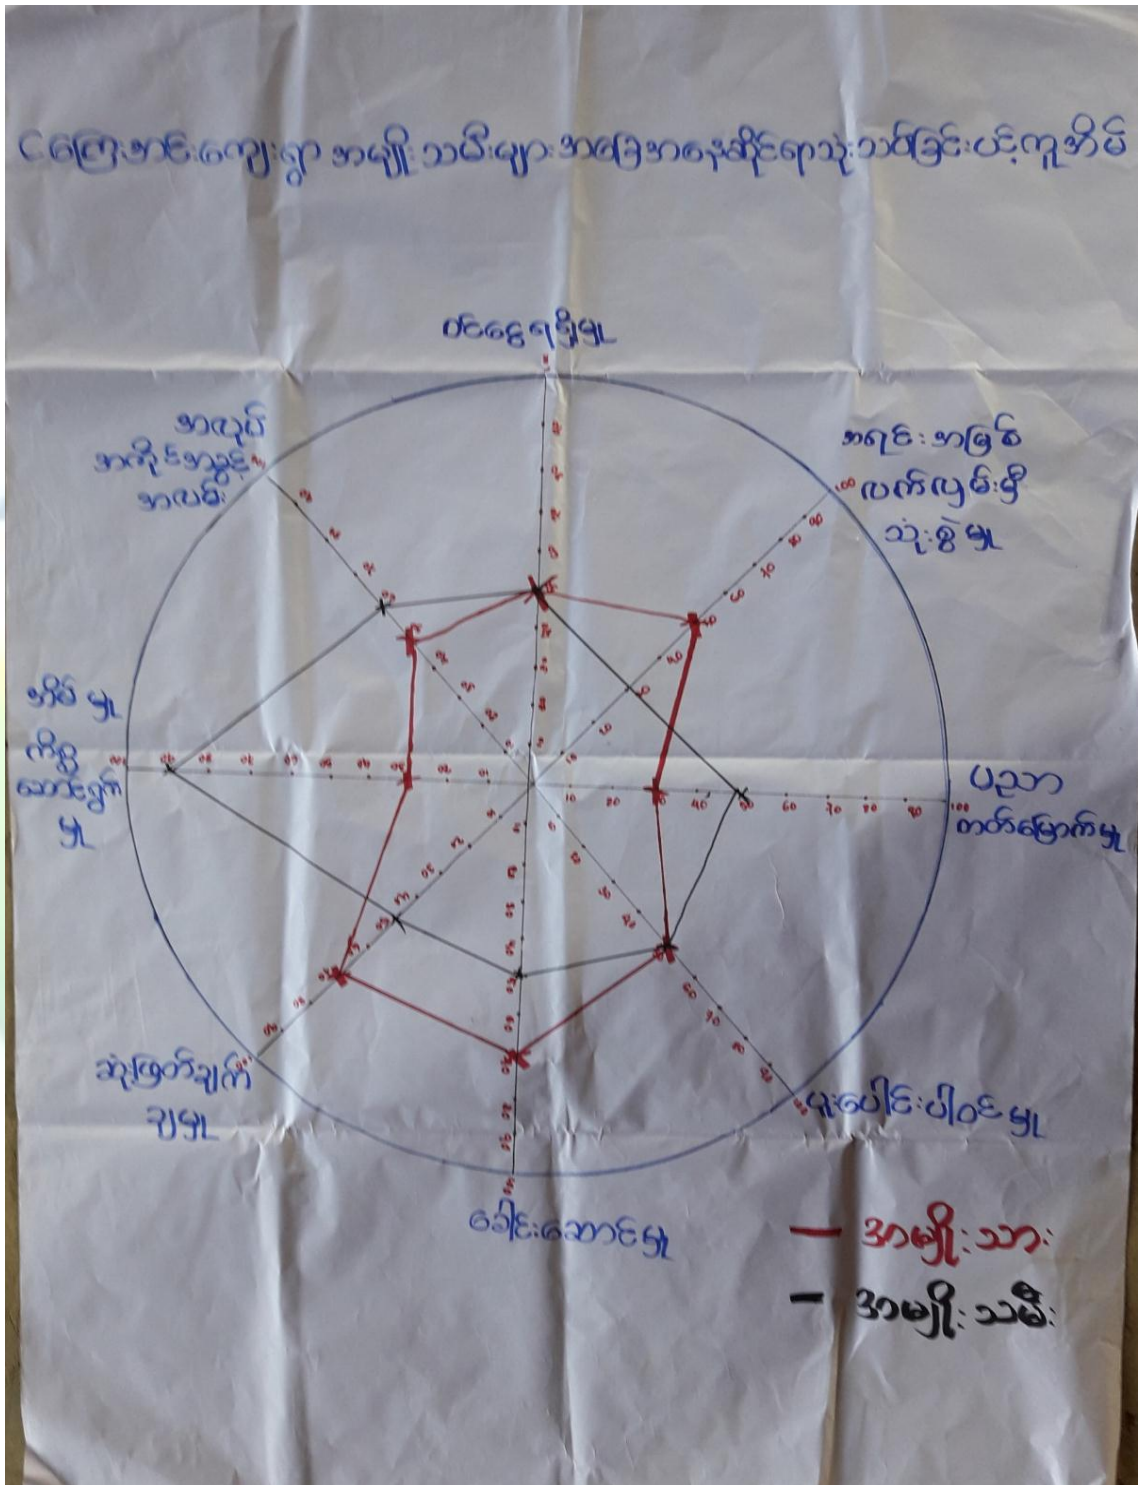 ငကြေးအင်းကျေးရွာ အမျိုးသမီးများ အခြေအနေဆိုင်ရာသုံးသပ်ခြင်းပင့်ကူအိမ်
ဝင်ငွေရရှိမှု
အရင်းအမြစ်
လက်လှမ်းမှီ
သုံးစွဲမှု
ပညာ
တတ်မြောက်မှု
ပူးပေါင်းပါဝင်မှု
ခေါင်းဆောင်မှု
ဆုံးဖြတ်ချက်
ချမှု
အိမ်မှု
ကိစ္စ
ဆောင်ရွက်
မှု
အလုပ်
အကိုင်အခွင့်
အလမ်း
100
90
80
70
60
50
40
10
20
30
40
50
60
70
80
90
100
— အမျိုးသား
— အမျိုးသမီး